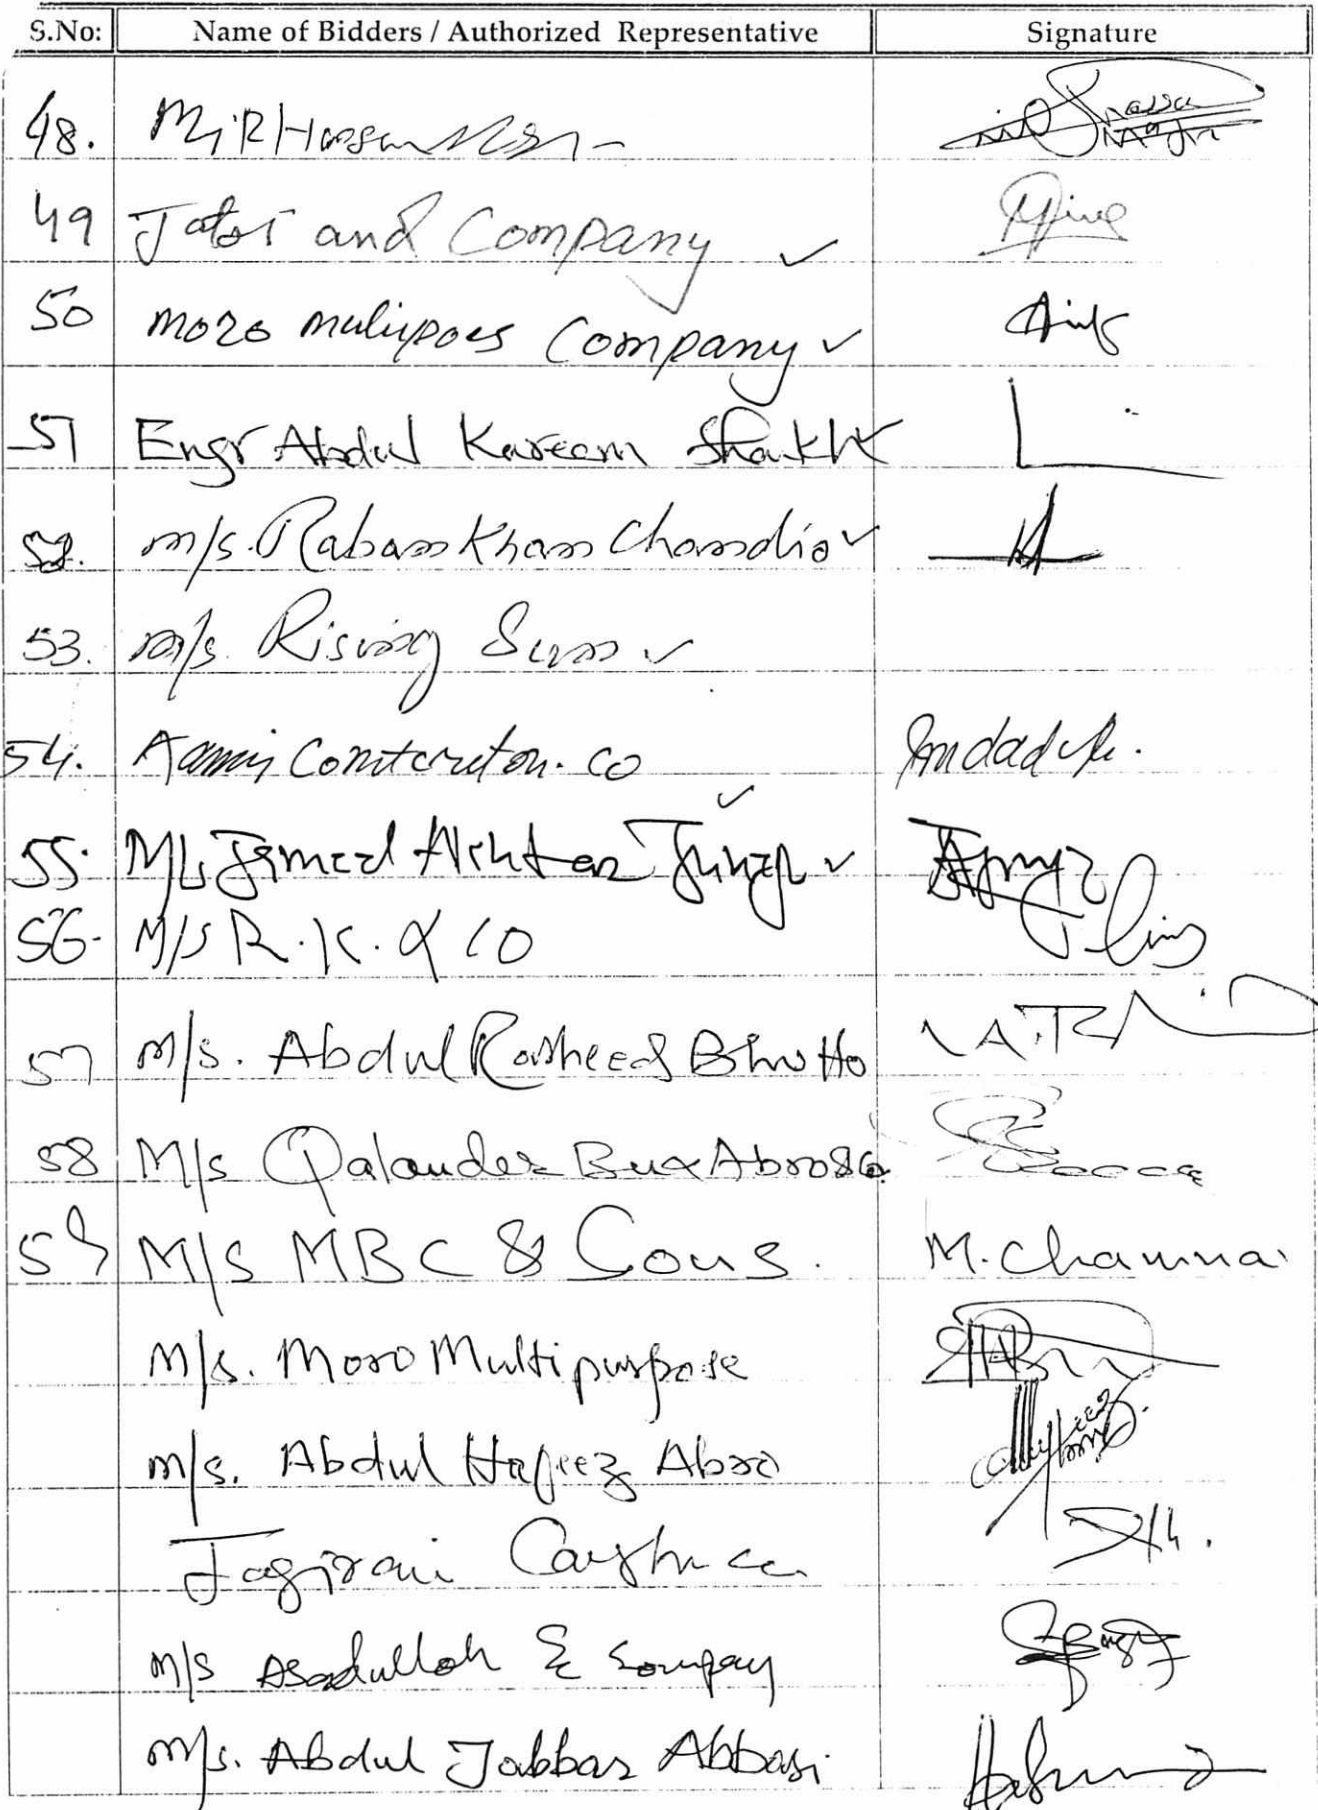 S.No: Name of Bidders / Authorized Representative Signature
48. Mir Hassan
49 Jatoi and Company ✓
50 moro mulipoes Company ✓
51 Engr Abdul Kareem Shaikh ✓
52. m/s. Raban Khan Chandio ✓
53. m/s. Rising Sun ✓
54. Co Imdad
✓
55. M/s Akhtar ✓
56- M/S R.K. & CO
57 m/s. Abdul Rasheed Bhutto
58 M/s Qalander Bux Abro & Co
59 M/S MBC & Cons. M. Channa
M/s. Moro Multipurpose
m/s. Abdul Hafeez Abro
Jagirani
M/s Asadullah & Company
m/s. Abdul Jabbar Abbasi